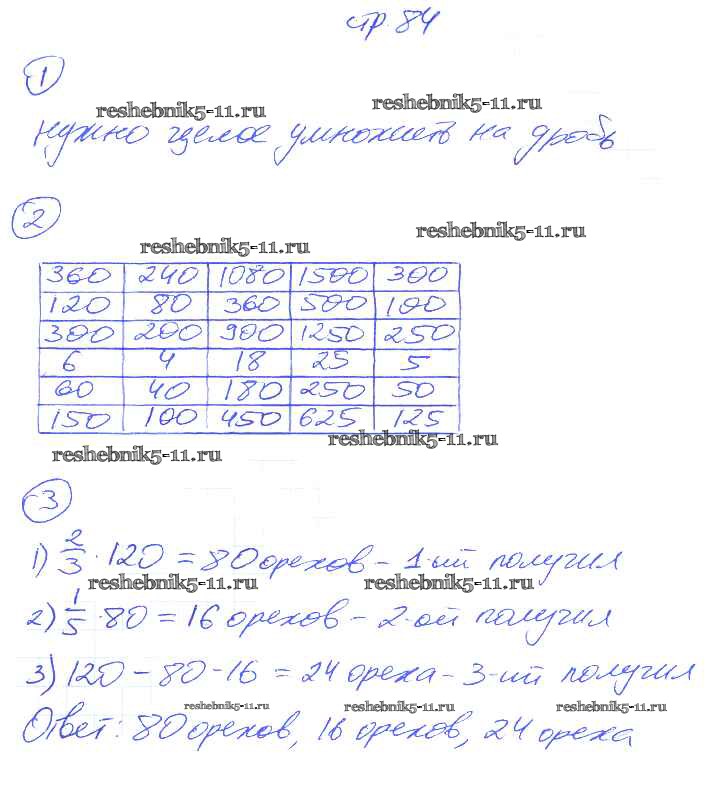 стр. 84
1
reshebnik5-11.ru reshebnik5-11.ru
нужно целое умножить на дробь
2
reshebnik5-11.ru reshebnik5-11.ru
360 240 1080 1500 300
120 80 360 500 100
300 200 900 1250 250
6 4 18 25 5
60 40 180 250 50
150 100 450 625 125
reshebnik5-11.ru reshebnik5-11.ru
3
1) 2/3 · 120 = 80 орехов – 1-ый получил
reshebnik5-11.ru reshebnik5-11.ru
2) 1/5 · 80 = 16 орехов – 2-ой получил
3) 120 – 80 - 16 = 24 ореха – 3-ий получил
reshebnik5-11.ru reshebnik5-11.ru reshebnik5-11.ru
Ответ: 80 орехов, 16 орехов, 24 ореха